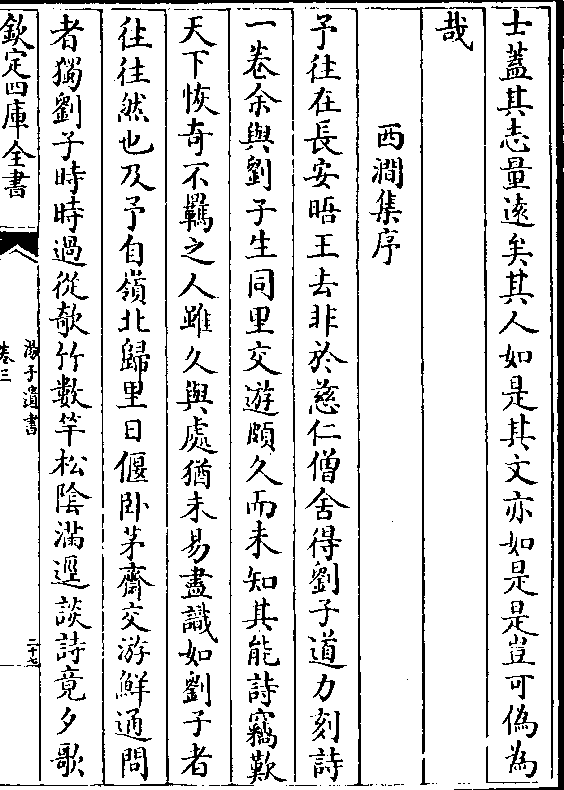 士蓋其志量遠矣其人如是其文亦如是是豈可偽為
哉
西澗集序
予往在長安晤王去非於慈仁僧舍得劉子道力刻詩
一卷余與劉子生同里交遊頗久而未知其能詩竊歎
天下恢奇不羈之人雖久與處猶未易盡識如劉子者
往往然也及予自嶺北歸里日偃卧茅齋交游鮮通問
者獨劉子時時過從欹竹數竿松陰滿逕談詩竟夕歌
欽定四庫全書
湯子遺書
卷三
二十七